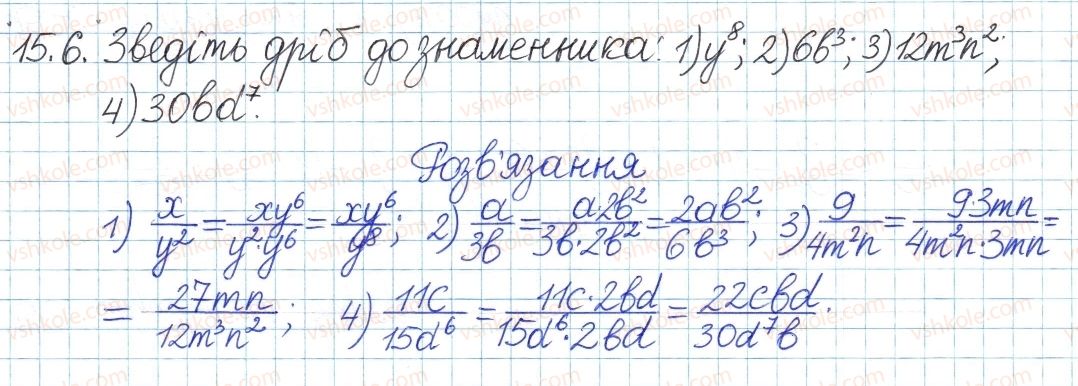 15.6. Зведіть дріб до знаменника: 1) y⁸; 2) 6b³; 3) 12m³n²;
4) 30bd⁷.
Розв'язання
1) x/y² = xy⁶/y²·y⁶ = xy⁶/y⁸; 2) a/3b = a2b²/3b·2b² = 2ab²/6b³; 3) 9/4m²n = 9·3mn/4m²n·3mn =
= 27mn/12m³n²; 4) 11c/15d⁶ = 11c·2bd/15d⁶·2bd = 22cbd/30d⁷b.